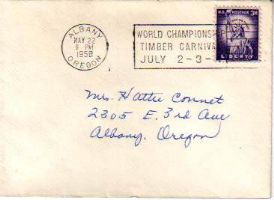 ALBANY
MAY 22
PM
1958
OREGON
WORLD CHAMPIONSHIP
TIMBER CARNIVAL
JULY 2-3-
3¢
LIBERTY
Mrs. Hattie Connet
2305 E. 3rd Ave
Albany, Oregon